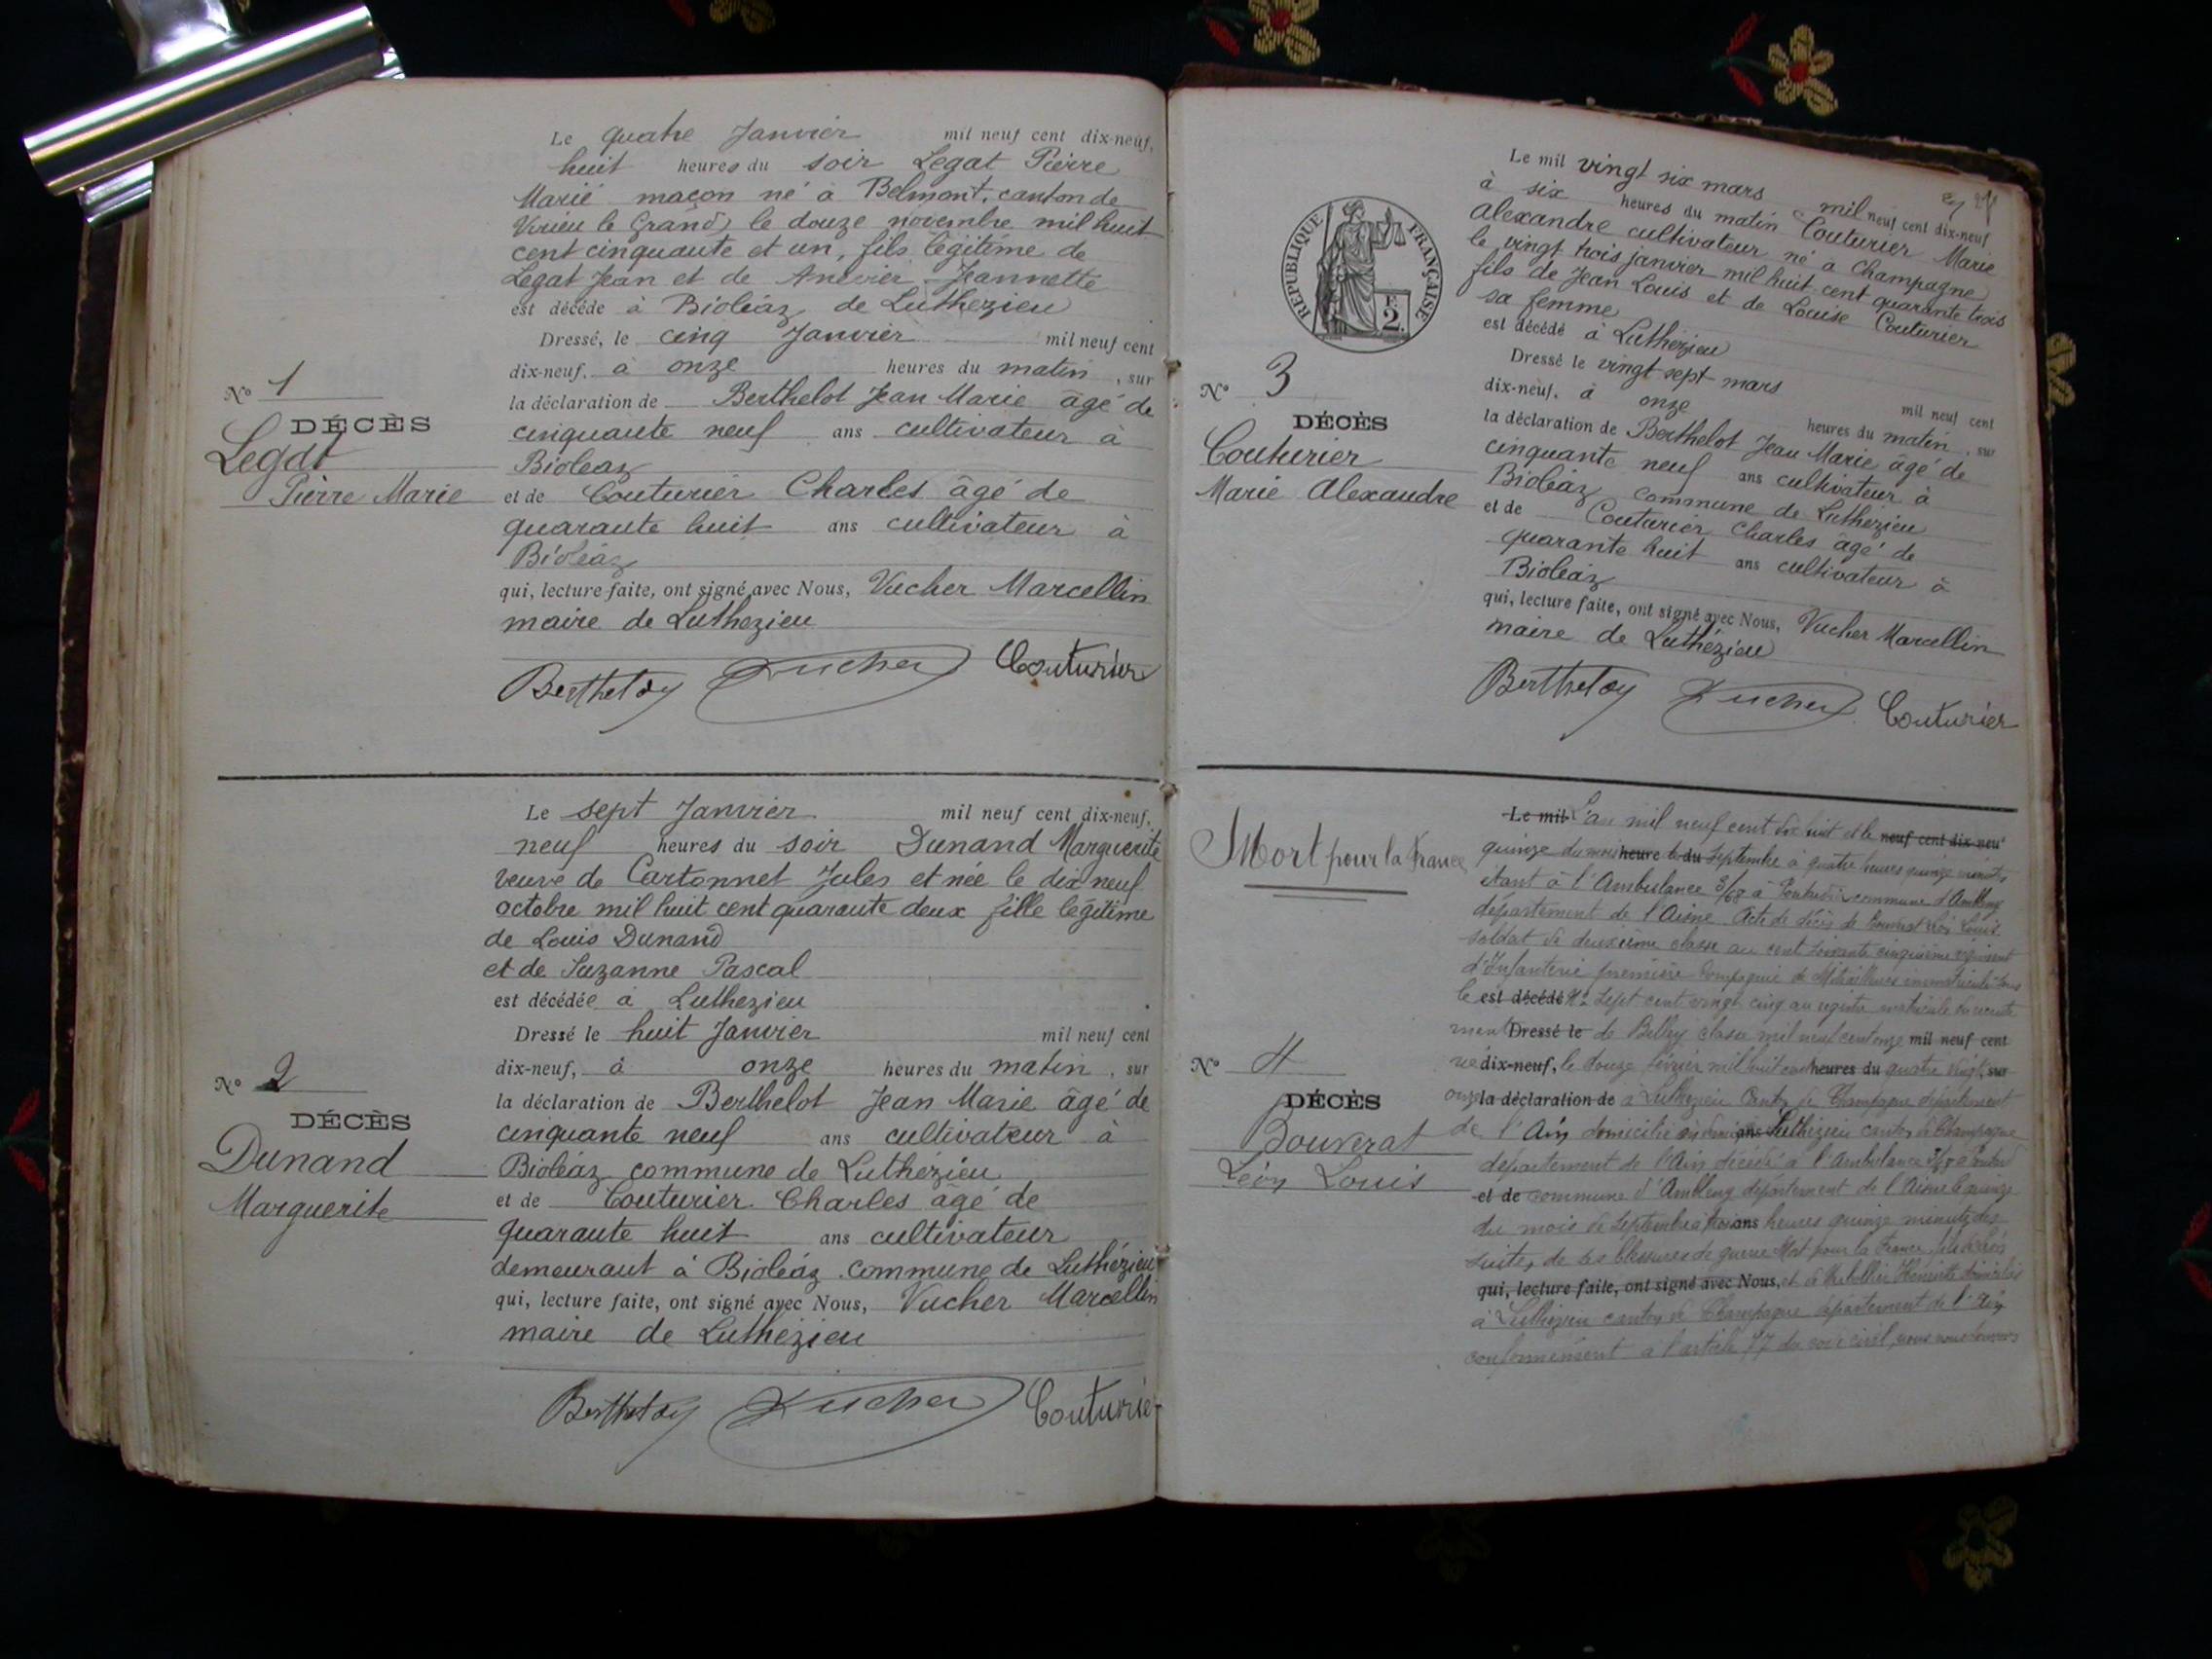 Le quatre Janvier mil neuf cent dix-neuf,
huit heures du soir Legat Pierre
Marie maçon né à Belmont, canton de
Virieu le Grand, le douze novembre mil huit
cent cinquante et un, fils légitime de
Legat Jean et de Jeannette
est décédé à Bioléaz de Luthezieu
Dressé, le cinq Janvier mil neuf cent
dix-neuf. à onze heures du matin, sur
la déclaration de Berthelot Jean Marie âgé de
cinquante neuf ans cultivateur à
Bioleaz
et de Couturier Charles âgé de
quarante huit ans cultivateur à
Bioléaz
qui, lecture faite, ont signé avec Nous, Vucher Marcellin
maire de Luthezieu
Berthelot Vucher Couturier
N° 1
DÉCÈS
Legat
Pierre Marie
Le sept Janvier mil neuf cent dix-neuf,
neuf heures du soir Dunand Marguerite
veuve de Cartonnet Jules et née le dix neuf
octobre mil huit cent quarante deux fille légitime
de Louis Dunand
et de Suzanne Pascal
est décédée à Luthezieu
Dressé le huit Janvier mil neuf cent
dix-neuf, à onze heures du matin, sur
la déclaration de Berthelot Jean Marie âgé de
cinquante neuf ans cultivateur à
Bioléaz commune de Luthézieu
et de Couturier Charles âgé de
quarante huit ans cultivateur
demeurant à Bioléaz commune de Luthézieu
qui, lecture faite, ont signé avec Nous, Vucher Marcellin
maire de Luthézieu
Berthelot Vucher Couturier
N° 2
DÉCÈS
Dunand
Marguerite
RÉPUBLIQUE FRANÇAISE
2 F.
Le mil vingt six mars mil neuf cent dix-neuf
à six heures du matin Couturier Marie
Alexandre cultivateur né à Champagne
le vingt trois janvier mil huit cent quarante trois
fils de Jean Louis et de Louise Couturier
sa femme
est décédé à Luthézieu
Dressé le vingt sept mars mil neuf cent
dix-neuf, à onze heures du matin, sur
la déclaration de Berthelot Jean Marie âgé de
cinquante neuf ans cultivateur à
Bioléaz commune de Luthézieu
et de Couturier Charles âgé de
quarante huit ans cultivateur à
Bioléaz
qui, lecture faite, ont signé avec Nous, Vucher Marcellin
maire de Luthézieu
Berthelot Vucher Couturier
N° 3
DÉCÈS
Couturier
Marie Alexandre
Mort pour la France
N° 4
DÉCÈS
Bouvrat
Léon Louis
Le mil L'an mil neuf cent dix huit et le neuf cent dix-neuf
quinze du mois heure de du Septembre à quatre heures quinze minutes
étant à l'Ambulance 3/68 à commune d'Ambleny
département de l'Aisne Acte de décès de Louis
soldat de deuxième classe au cent soixante cinquième régiment
d'Infanterie première Compagnie de Mitrailleuses immatriculé sous
le est décédé N° Sept cent vingt cinq au registre matricule du recrute
ment Dressé le de Belley classe mil neuf cent onze mil neuf cent
né dix-neuf, le douze février mil huit cent heures du quatre vingt, sur
onze la déclaration de à Luthezieu Canton de Champagne département
de l'Ain domicilié en dernier ans Luthezieu canton de Champagne
département de l'Ain décédé à l'Ambulance 3/68 à
et de commune d'Ambleny département de l'Aisne le quinze
du mois de Septembre à trois ans heures quinze minutes des
suites de ses blessures de guerre Mort pour la France, fils de
qui, lecture faite, ont signé avec Nous, et de domiciliés
à Luthezieu canton de Champagne département de l'Ain
conformément à l'article 77 du code civil, nous nous sommes